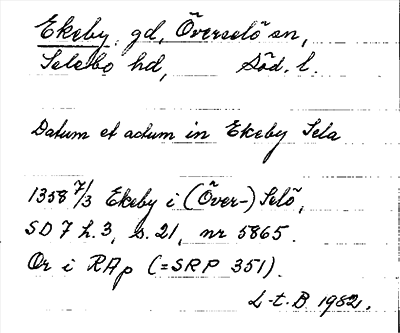 Ekeby, gd, Överselö sn,
Selebo hd, Söd. l.
Datum et actum in Ekeby Sela
1358 7/3 Ekeby i (Över-) Selö,
SD 7 h. 3, s. 21, nr 5865.
Or i RAp (=SRP 351).
L-t. B. 1982.